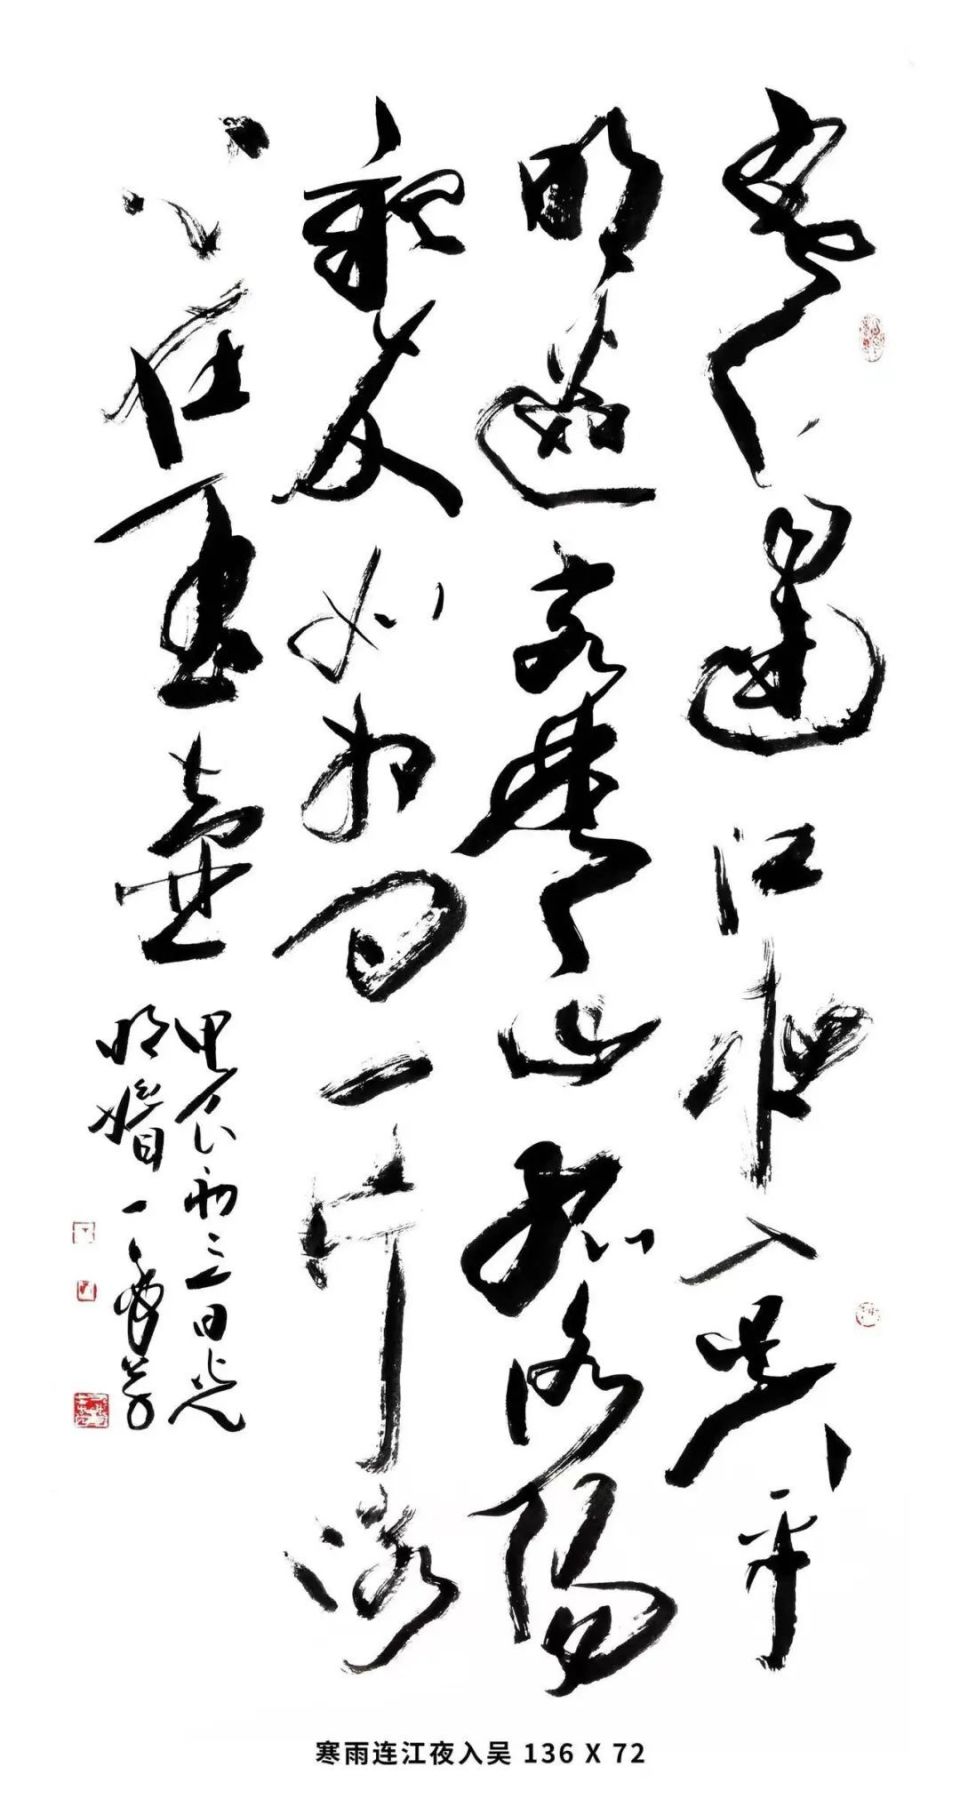 寒雨連江夜入吳平
明送客楚山孤洛陽
親友如相問一片冰
心在玉壺
甲辰初三日
寒雨连江夜入吴 136 X 72